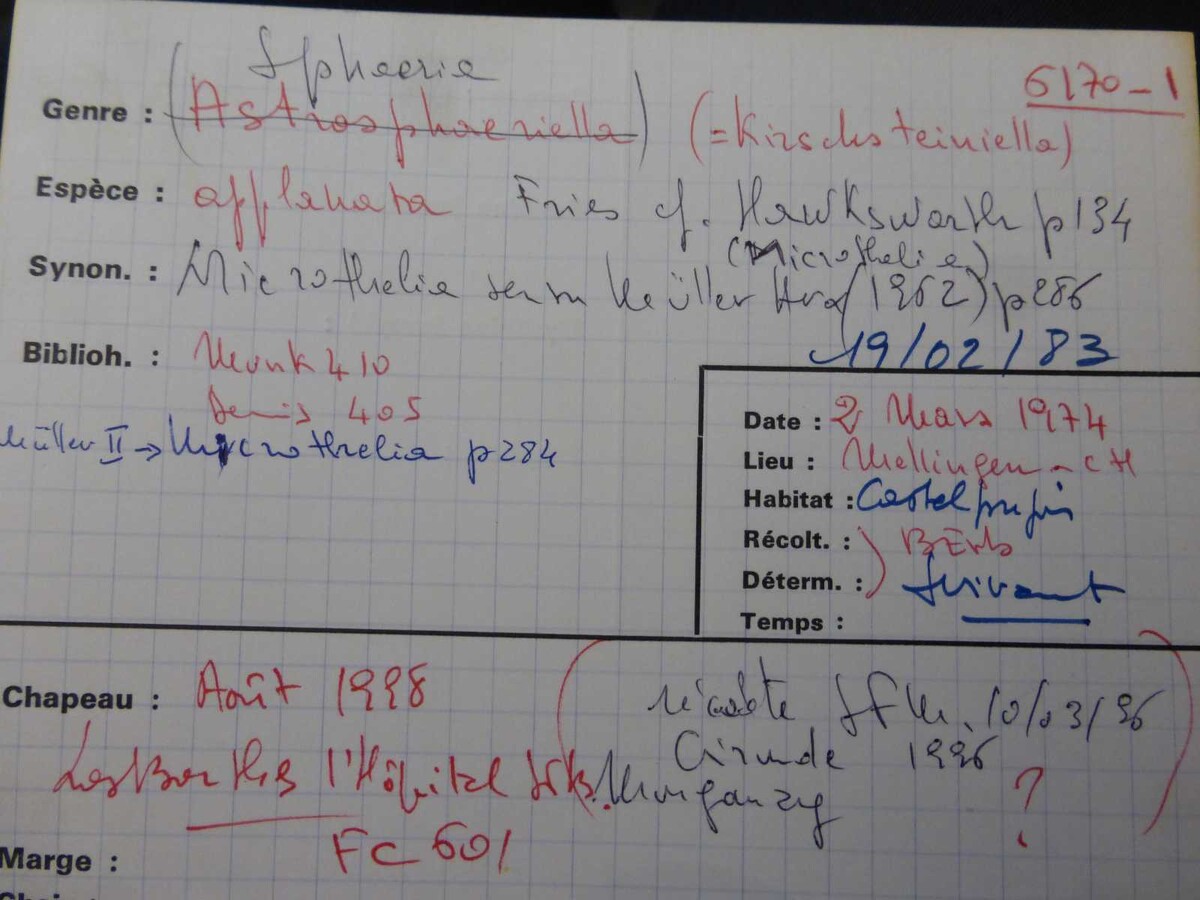 Sphaeria
6170-1
Genre : (Astrosphaeriella) (=Kirschsteiniella)
Espèce : applanata Fries cf. Hawksworth p134
(Microthelia)
Synon. : Microthelia sensu Müller Arx (1962) p286
19/02/83
Biblioh. : Munk 410
Denis 405
Müller II → Microthelia p284
Date : 2 Mars 1974
Lieu : Mellingen - CH
Habitat : Castelpugin
Récolt. :
Déterm. : Suivant
Temps :
Chapeau : Août 1998
(récolte SFM. 10/03/96
Gironde 1996
l'Hôpital
?)
FC 601
Marge :